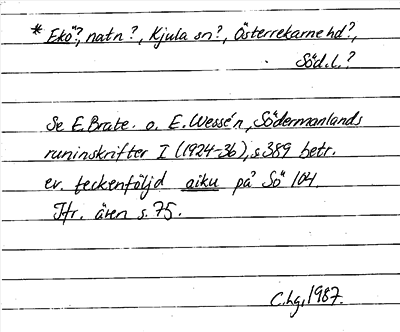 * Ekö?, natn?, Kjula sn?, Österrekarne hd?,
Söd.l.?
Se E. Brate o. E. Wessén, Södermanlands
runinskrifter I (1924-36), s. 389 betr.
ev. teckenföljd aiku på Sö 104.
Jfr. även s. 75.
C.hg, 1987.